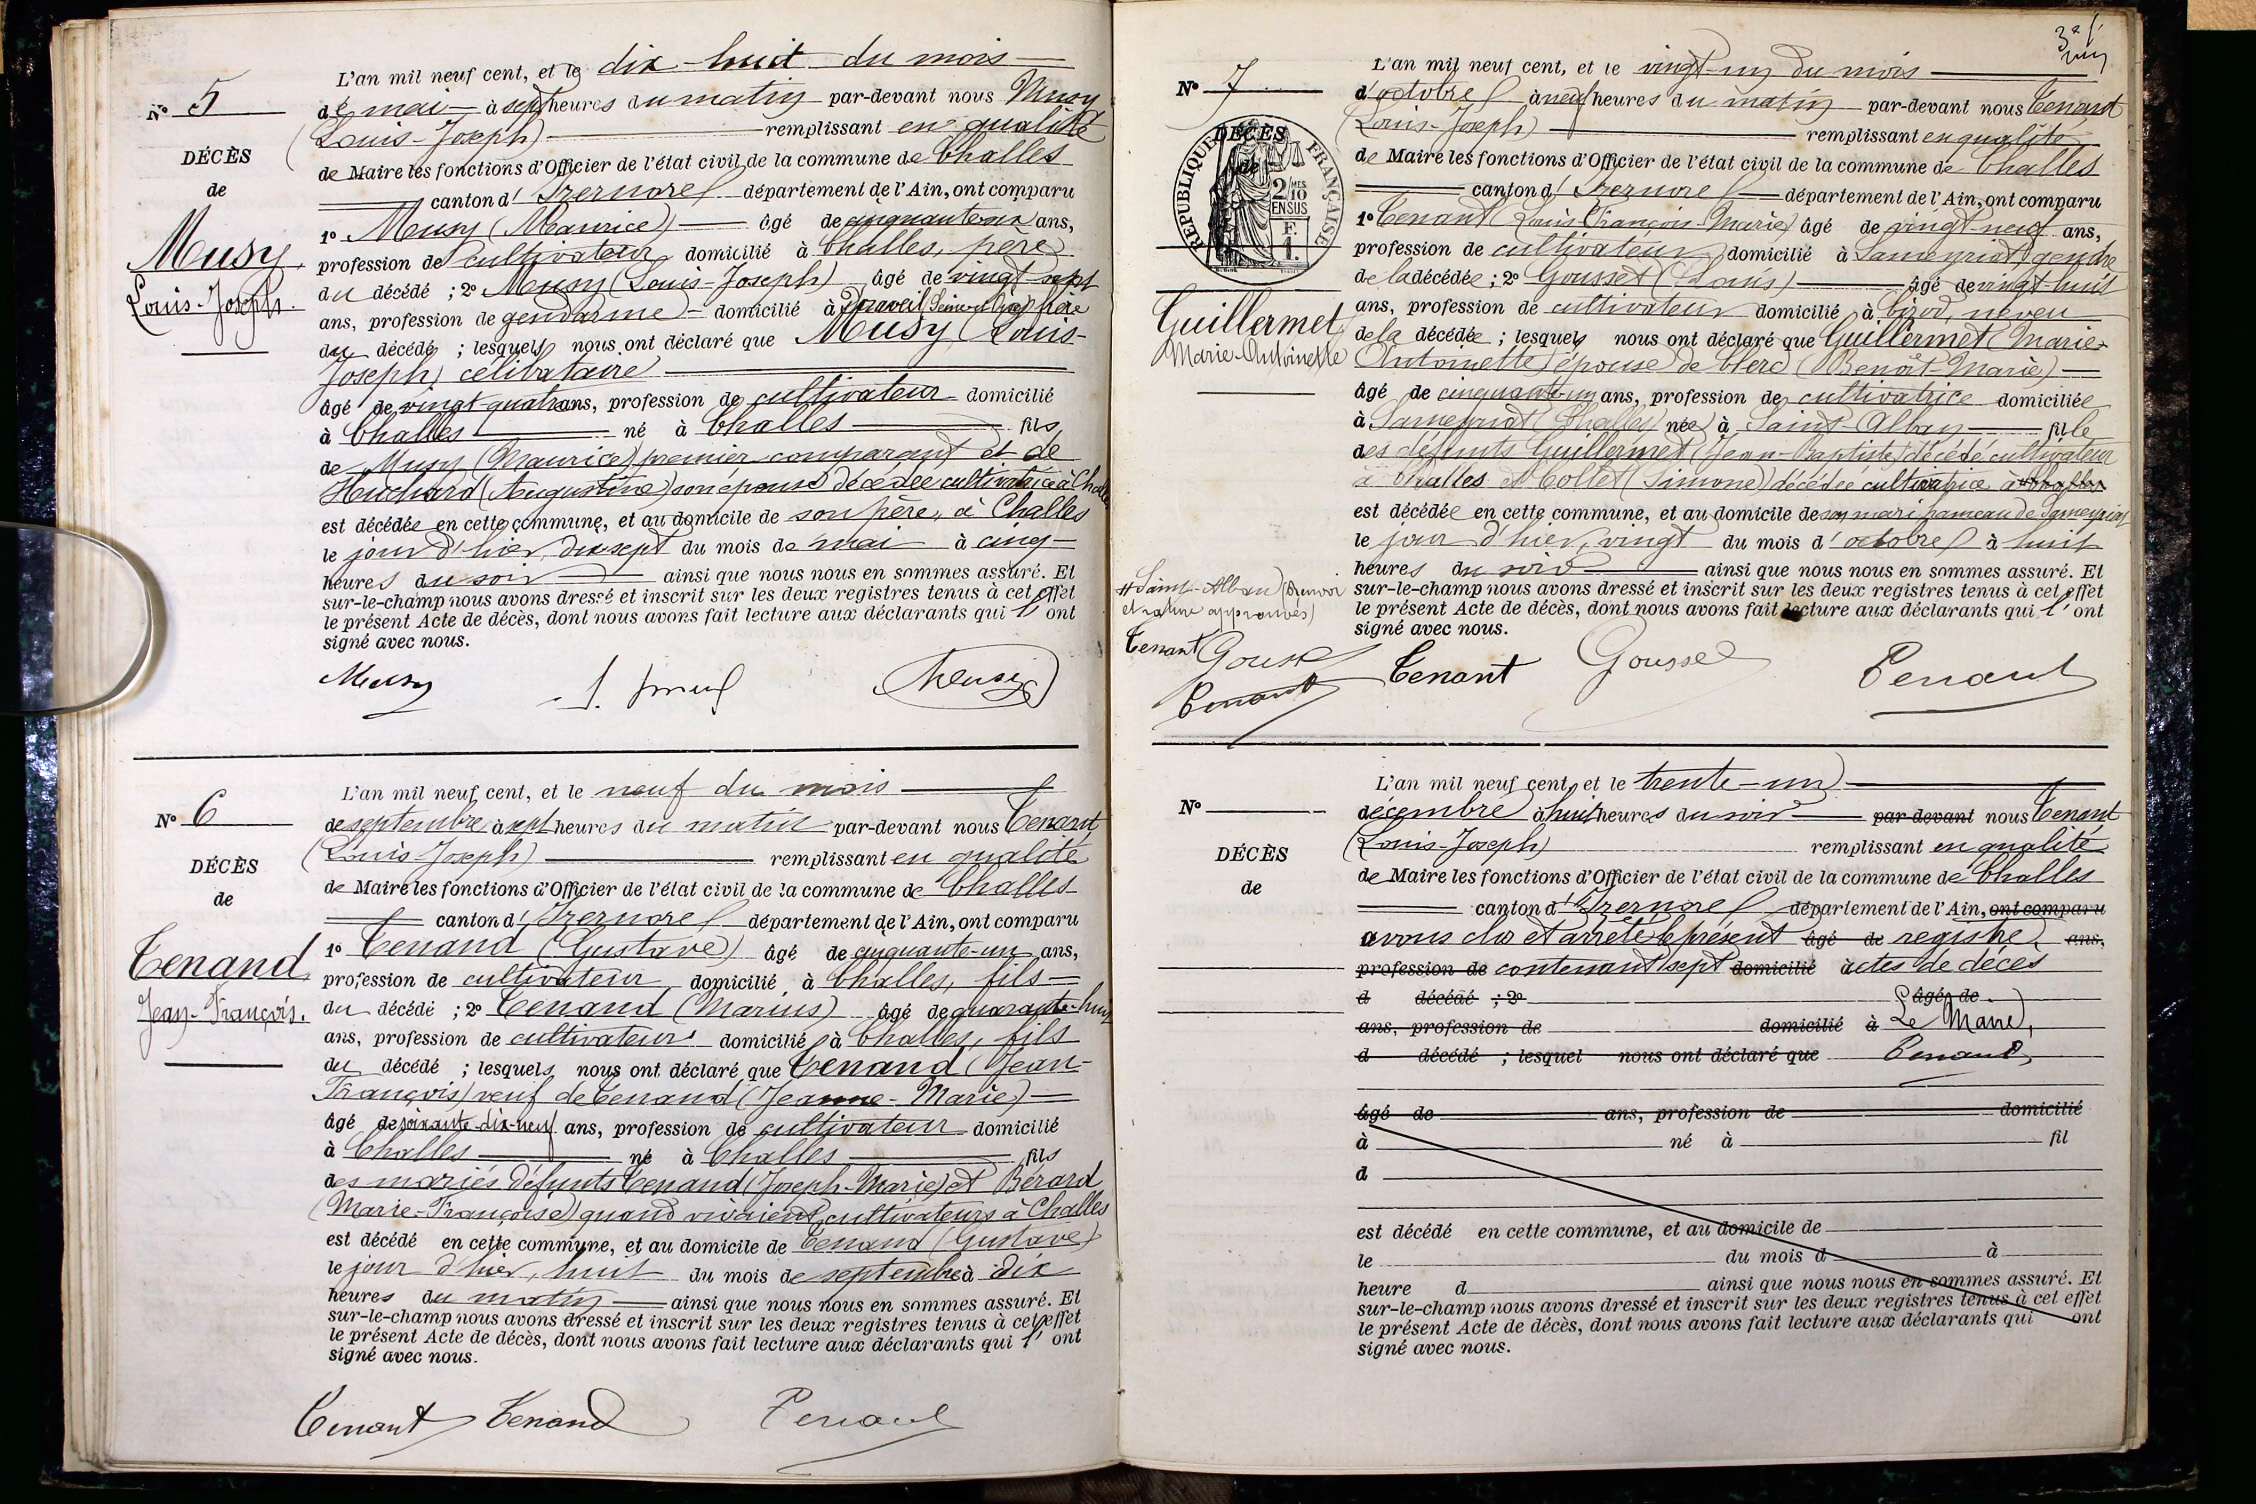 L'an mil neuf cent, et le dix-huit du mois
N° 5
de mai à sept heures du matin par-devant nous Musy
(Louis-Joseph) remplissant en qualité
DÉCÈS
de Maire les fonctions d'Officier de l'état civil de la commune de Challes
de
canton d'Izernore département de l'Ain, ont comparu
Musy
1° Musy (Maurice) âgé de cinquante-six ans,
profession de cultivateur domicilié à Challes, père
Louis-Joseph.
du décédé ; 2° Musy (Louis-Joseph) âgé de vingt-sept
ans, profession de gendarme domicilié à Draveil (Seine-et-Oise) frère
du décédé ; lesquels nous ont déclaré que Musy (Louis-
Joseph) célibataire
âgé de vingt-quatre ans, profession de cultivateur domicilié
à Challes né à Challes fils
de Musy (Maurice) premier comparant et de
Huchard (Augustine) son épouse décédée cultivatrice à Challes
est décédé en cette commune, et au domicile de son père, à Challes
le jour d'hier, dix-sept du mois de mai à cinq
heures du soir ainsi que nous nous en sommes assuré. Et
sur-le-champ nous avons dressé et inscrit sur les deux registres tenus à cet effet
le présent Acte de décès, dont nous avons fait lecture aux déclarants qui l'ont
signé avec nous.
Musy
L'an mil neuf cent, et le neuf du mois
N° 6
de septembre à sept heures du matin par-devant nous Tenant
(Louis-Joseph) remplissant en qualité
DÉCÈS
de Maire les fonctions d'Officier de l'état civil de la commune de Challes
de
canton d'Izernore département de l'Ain, ont comparu
Tenand
1° Tenand (Gustave) âgé de cinquante-un ans,
profession de cultivateur domicilié à Challes, fils
Jean-François.
du décédé ; 2° Tenand (Marius) âgé de quarante-huit
ans, profession de cultivateur domicilié à Challes, fils
du décédé ; lesquels nous ont déclaré que Tenand (Jean-
François) veuf de Tenand (Jeanne-Marie)
âgé de soixante-dix-neuf ans, profession de cultivateur domicilié
à Challes né à Challes fils
des mariés défunts Tenand (Joseph-Marie) et Bérard
(Marie-Françoise) quand vivaient cultivateurs à Challes
est décédé en cette commune, et au domicile de Tenand (Gustave)
le jour d'hier, huit du mois de septembre à dix
heures du matin ainsi que nous nous en sommes assuré. Et
sur-le-champ nous avons dressé et inscrit sur les deux registres tenus à cet effet
le présent Acte de décès, dont nous avons fait lecture aux déclarants qui l'ont
signé avec nous.
Tenant Tenand Tenant
L'an mil neuf cent, et le vingt-un du mois
N° 7
d'octobre à neuf heures du matin par-devant nous Tenant
(Louis-Joseph) remplissant en qualité
DÉCÈS
de
RÉPUBLIQUE FRANÇAISE
2/10 MES
EN SUS
F.
1.
de Maire les fonctions d'Officier de l'état civil de la commune de Challes
canton d'Izernore département de l'Ain, ont comparu
1° Tenand (Louis François-Marie) âgé de vingt-neuf ans,
profession de cultivateur domicilié à Sameyriat, gendre
de la décédée ; 2° Gousset (Louis) âgé de vingt-huit
Guillermet
Marie-Antoinette
ans, profession de cultivateur domicilié à neveu
de la décédée ; lesquels nous ont déclaré que Guillermet (Marie-
Antoinette) épouse de Clerc (Benoît-Marie)
âgé de cinquante-un ans, profession de cultivatrice domiciliée
à Sameyriat (Challes) née à Saint-Alban fille
des défunts Guillermet (Jean-Baptiste) décédé cultivateur
à Challes et Collet (Simone) décédée cultivatrice à Challes
est décédée en cette commune, et au domicile de son mari hameau de Sameyriat
le jour d'hier, vingt du mois d'octobre à huit
heures du soir ainsi que nous nous en sommes assuré. Et
sur-le-champ nous avons dressé et inscrit sur les deux registres tenus à cet effet
le présent Acte de décès, dont nous avons fait lecture aux déclarants qui l'ont
signé avec nous.
# Saint-Alban (Renvoi
et rature approuvés)
Tenant Gousset
Tenant
Tenant Gousset Tenant
L'an mil neuf cent, et le trente-un
N°
décembre à huit heures du soir par-devant nous Tenant
(Louis-Joseph) remplissant en qualité
DÉCÈS
de Maire les fonctions d'Officier de l'état civil de la commune de Challes
de
canton d'Izernore département de l'Ain, ont comparu
avons clos et arrêté le présent âgé de registre ans,
profession de contenant sept domicilié actes de décès
d décédé ; 2° âgé de
ans, profession de domicilié à Le Maire,
d décédé ; lesquel nous ont déclaré que Tenant
âgé de ans, profession de domicilié
à né à fil
d
est décédé en cette commune, et au domicile de
le du mois d à
heure d ainsi que nous nous en sommes assuré. Et
sur-le-champ nous avons dressé et inscrit sur les deux registres tenus à cet effet
le présent Acte de décès, dont nous avons fait lecture aux déclarants qui ont
signé avec nous.